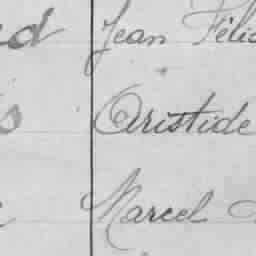 Jean Féli
Aristide
Marcel